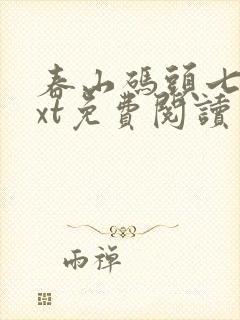 春山碼頭七
xt免費閱讀
雨禅